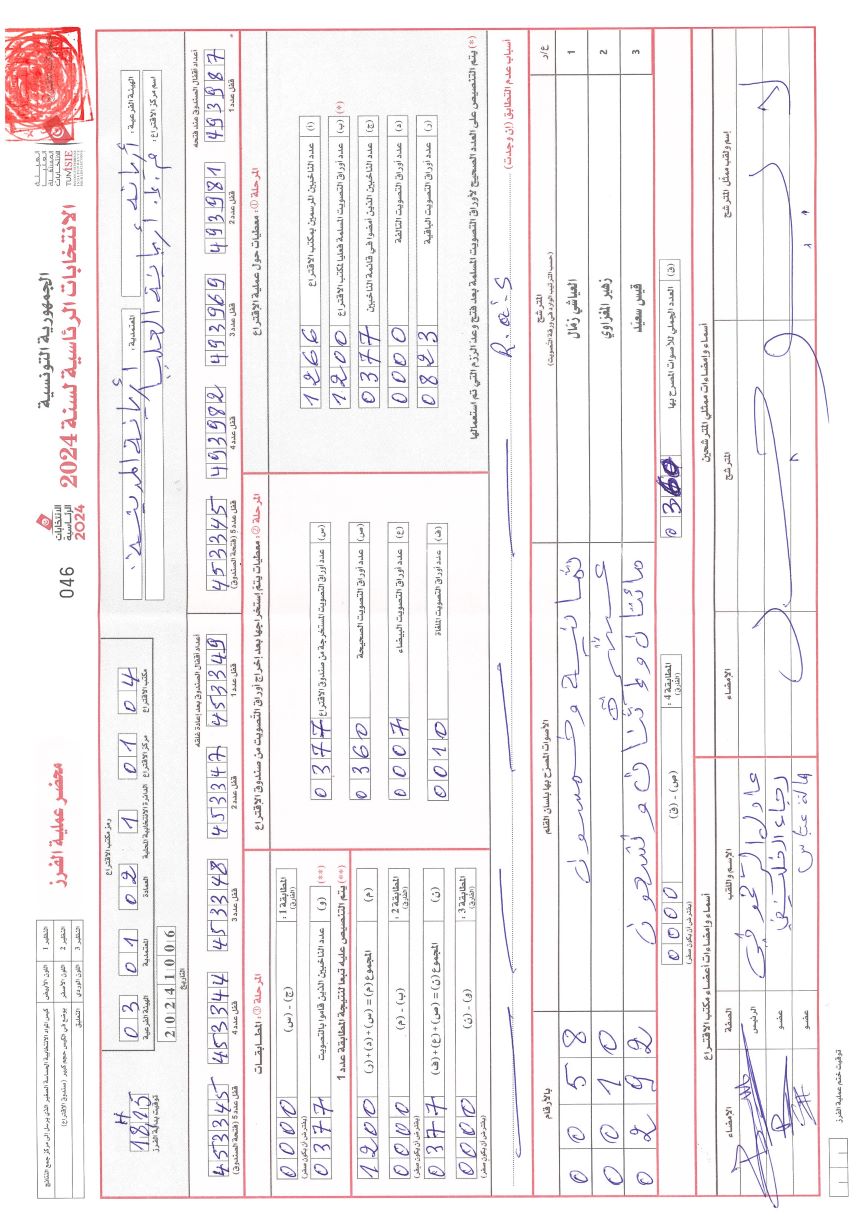 الجمهورية التونسية
الانتخابات الرئاسية لسنة 2024
الانتخابات
الرئاسية
2024
046
محضر عملية الفرز
الهيئة الفرعية : أريانة
المعتمدية : أريانة المدينة
اسم مركز الاقتراع :
رمز مكتب الاقتراع
03 01 02 1 01 04
الهيئة الفرعية المعتمدية العمادة الدائرة الانتخابية المحلية مركز الاقتراع مكتب الاقتراع
20241006
التاريخ
توقيت بداية الفرز
أعداد أقفال الصندوق عند فتحه
493987
قفل عدد 1
493981
قفل عدد 2
493969
قفل عدد 3
493982
قفل عدد 4
453345
قفل عدد 5 (فتحة الصندوق)
أعداد أقفال الصندوق بعد إعادة غلقه
453349
قفل عدد 1
453347
قفل عدد 2
453348
قفل عدد 3
453344
قفل عدد 4
453345
قفل عدد 5 (فتحة الصندوق)
المرحلة ① : معطيات حول عملية الاقتراع
(أ) عدد الناخبين المرسمين بمكتب الاقتراع 1266
(ب) عدد أوراق التصويت المسلمة فعليا لمكتب الاقتراع (*) 1200
(ج) عدد الناخبين الذين أمضوا في قائمة الناخبين 0377
(د) عدد أوراق التصويت التالفة 0000
(ر) عدد أوراق التصويت الباقية 0823
(*) يتم التنصيص على العدد الصحيح لأوراق التصويت المسلمة بعد فتح وعد الرزم التي تم استعمالها
المرحلة ② : معطيات يتم إستخراجها بعد إخراج أوراق التصويت من صندوق الاقتراع
(س) عدد أوراق التصويت المستخرجة من صندوق الاقتراع 0377
(ص) عدد أوراق التصويت الصحيحة 0360
(ع) عدد أوراق التصويت البيضاء 0007
(ف) عدد أوراق التصويت الملغاة 0010
المرحلة ③ : المطابقات
المطابقة 1 : (الفارق) (ج) - (س) 0000 (يفترض أن يكون صفر)
(و) عدد الناخبين الذين قاموا بالتصويت 0377
(**) يتم التنصيص عليه تبعا لنتيجة المطابقة عدد 1
(م) المجموع (م) = (س) + (د) + (ر) 1200
المطابقة 2 : (الفارق) (ب) - (م) 0000 (يفترض أن يكون صفر)
(ن) المجموع (ن) = (ص) + (ع) + (ف) 0377
المطابقة 3 : (الفارق) (و) - (ن) 0000 (يفترض أن يكون صفر)
أسباب عدم التطابق (إن وجدت)
R.a.S
ع/ر المترشح الأصوات المصرّح بها بلسان القلم بالأرقام
(حسب الترتيب الوارد في ورقة التصويت)
1 العياشي زمال ثمانية وخمسون 0058
2 زهير المغزاوي عشرة 0010
3 قيس سعيد مائتان واثنان وتسعون 0292
(ق) العدد الجملي للأصوات المصرح بها 0360
المطابقة 4 : (الفارق) (ص) - (ق) 0000 (يفترض أن يكون صفر)
أسماء وإمضاءات ممثلي المترشحين
إسم ولقب ممثل المترشح المترشح الامضاء
أسماء وإمضاءات أعضاء مكتب الاقتراع
الإسم واللقب الصفة الامضاء
الرئيس
عضو
هالة عباس عضو
توقيت ختم عملية الفرز